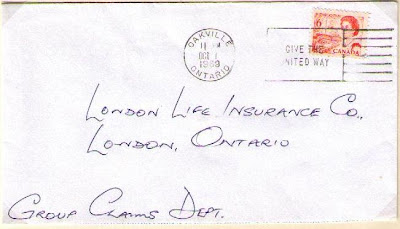 OAKVILLE
11 AM
OCT 1
1969
ONTARIO
GIVE THE
UNITED WAY
6
CANADA
LONDON LIFE INSURANCE CO.,
LONDON, ONTARIO
GROUP CLAIMS DEPT.